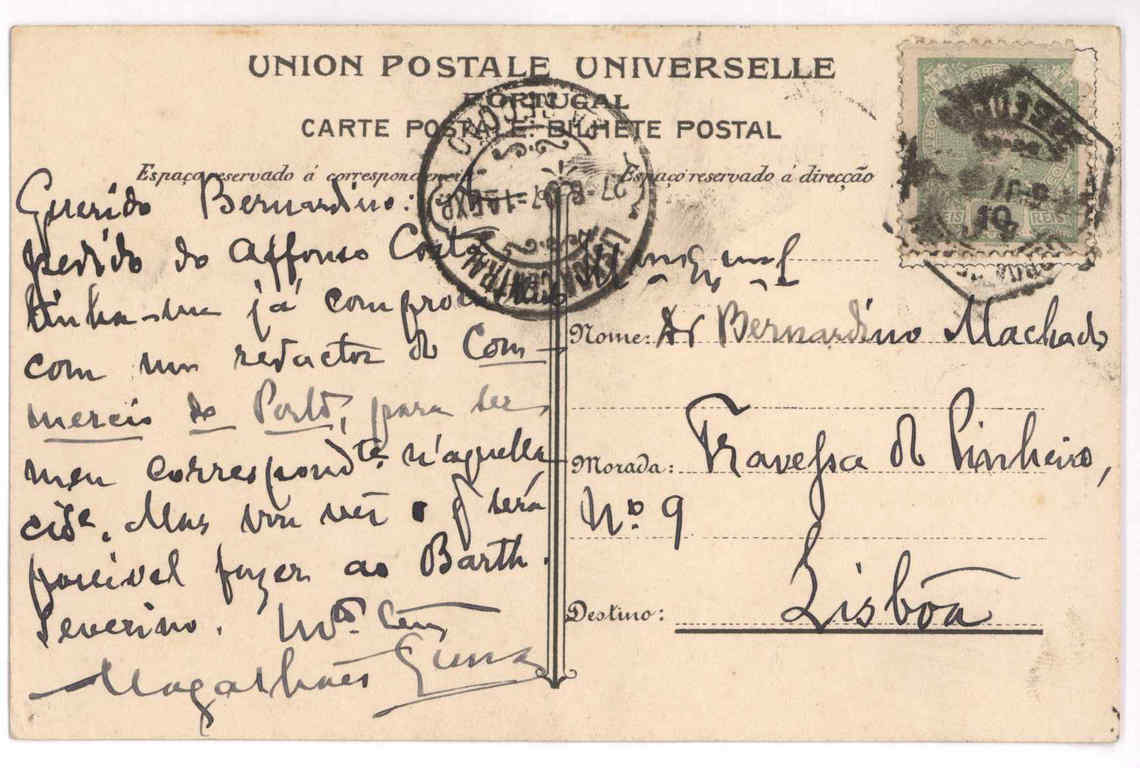 UNION POSTALE UNIVERSELLE
PORTUGAL
CARTE POSTALE: BILHETE POSTAL
Espaço reservado á correspondencia
Espaço reservado á direcção
Querido Bernardino:
pedido do Affonso Costa
tinha-me já
com um redactor do Com-
mercio do Porto, para ser
meu correspondte n'aquella
cide. Mas vou ver o q será
possivel fazer ao Barth.
Severino.
Magalhães Lima
Nome: Dr Bernardino Machado
Morada: Travessa do Pinheiro,
Nº 9
Destino: Lisbôa
CENTRAL
REIS 10 REIS